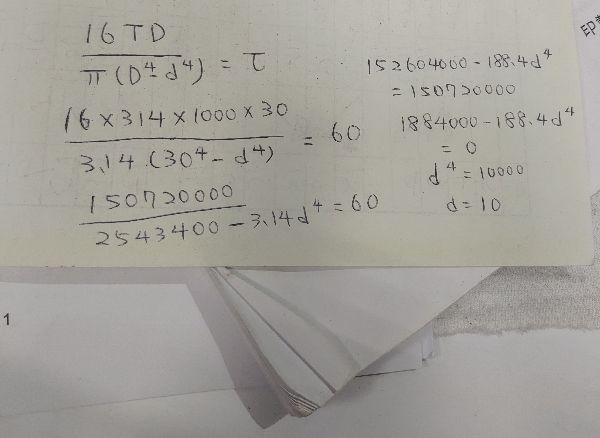 16TD
π(D⁴-d⁴) = τ
16×314×1000×30
3.14(30⁴-d⁴) = 60
150720000
2543400-3.14d⁴ = 60
152604000-188.4d⁴
=150720000
1884000-188.4d⁴
=0
d⁴=10000
d=10
EP
1